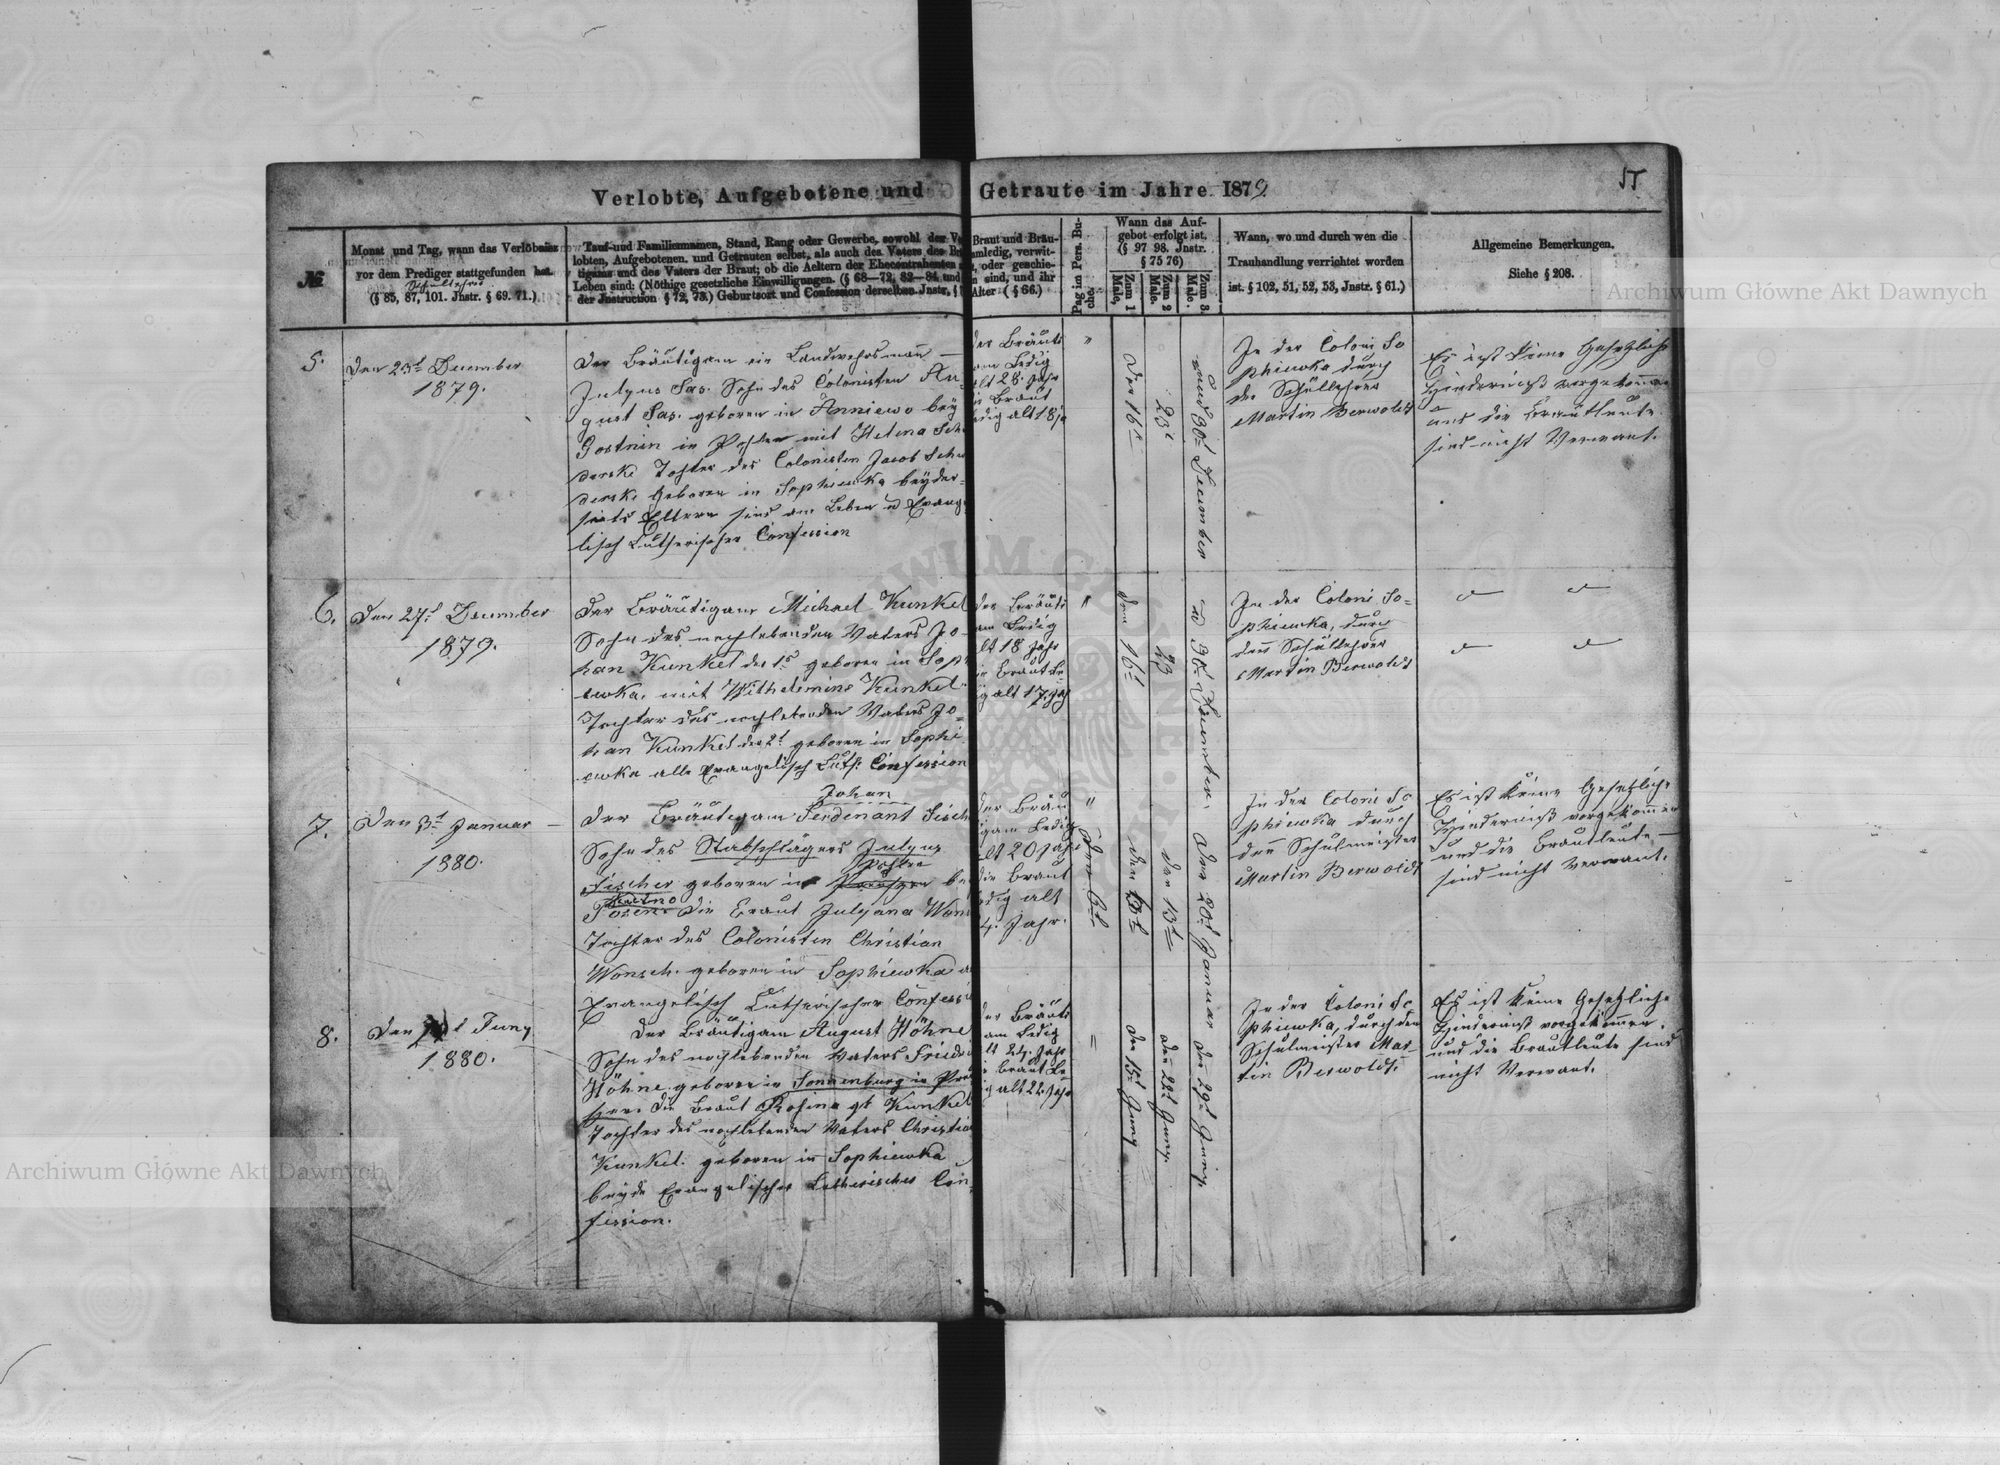 Verlobte, Aufgebotene und Getraute im Jahre 1879.
№
Monat und Tag, wann das Verlöbniss
vor dem Prediger stattgefunden hat.
Schullehrer
(§ 85, 87, 101. Jnstr. § 69. 71.)
Tauf- und Familiennamen, Stand, Rang oder Gewerbe, sowohl der Ver
lobten, Aufgebotenen und Getrauten selbst, als auch des Vaters des Bräu
tigams und des Vaters der Braut; ob die Aeltern der Ehecontrahenten am
Leben sind; (Nöthige gesetzliche Einwilligungen. (§ 68—72, 82—84 und
der Jnstruction § 72, 73.) Geburtsort und Confession derselben. Jnstr. §
Braut und Bräu-
ledig, verwit-
oder geschie-
sind, und ihr
Alter (§ 66.)
Pag im Pers. Bu-
che.
Wann das Auf-
gebot erfolgt ist.
(§ 97 98. Jnstr.
§ 75 76)
Zum 1 Male.
Zum 2 Male.
Zum 3. Male.
Wann, wo und durch wen die
Trauhandlung verrichtet worden
ist. § 102, 51, 52, 53, Jnstr. § 61.)
Allgemeine Bemerkungen.
Siehe § 208.
5.
Den 23t December
1879.
Der Bräutigam ein Landwehrsmann
Julyus Sas. Sohn des Colonisten Au-
gust Sas. geboren in Anniewo bey
Gostnin in Pohlen mit Helena Sch
derske Tochter des Colonisten Jacob Sch
derske Geboren in Sophiewka beyder-
seits Eltern sind am Leben u Evange
lisch Lutherischer Confession
der Bräuti
am Ledig
alt 28. Jahr
Braut
ledig alt 18 ja
"
Der 16t
23t
und 30t December
In der Coloni So
phiewka durch
de Schullehrer
Martin Berwoldt
Es ist keine Gesetzliche
Hinderniß vorgekommen
und die Brautleute
sind nicht Verwant.
6.
Den 27t December
1879.
Der Bräutigam Michael Kunkel
Sohn des nochlebenden Vaters Jo-
han Kunkel der 1t geboren in Soph
ewka, mit Wilhelmine Kunkel
Tochter des nochlebenden Vaters Jo-
han Kunkel der 2t geboren in Sophi
ewka alle Evangelisch Luth: Confession
der Bräuti
am Ledig
alt 18 Jahr
Braut Le
ig alt 17 Jah
"
den 16t
23
u 30t December.
In der Coloni So-
phiewka, durch
den Schullehrer
Martin Berwoldt
7.
Den 3t Januar
1880.
Johan
Der Bräutigam Ferdenant Fisch
Sohn des Stabschlägers Julyus
Pohlen
Fischer geboren in Preußen bei
Kutno
Posen. Die Braut Julyana Wons
Tochter des Colonisten Christian
Wonsch. geboren in Sophiewka
Evangelisch Lutherischer Confessi
der Bräu
igam Ledig
alt 20 Jahr
die Braut
ledig alt
Jahr.
"
den 6t
den 13t
Der 20t Januar
In der Coloni So
phiewka durch
den Schulmeister
Martin Berwoldt
Es ist keine Gesetzliche
Hinderniß vorgekommen
und die Brautleute
sind nicht Verwant.
8.
Den Juny
1880.
Der Bräutigam August Höhne
Sohn des nochlebenden Vaters Friedr
Höhne geboren in Sonnenburg in Preu
ßen. Die Braut Rosina gb Kunkel
Tochter des nochlebenden Vaters Christia
Kunkel. geboren in Sophiewka
beyde Evangelischer Lutherischer Con
fession.
der Bräuti
am Ledig
alt 24. Jahr
Braut Le
ig alt 22. Jahr
den 15t Juny
den 22t Juny.
den 29t Juny.
In der Coloni So
phiewka, durch den
Schulmeister Mar
tin Berwoldt.
Es ist keine Gesetzliche
Hinderniß vorgekommen.
und die Brautleute sind
nicht Verwant.
Archiwum Główne Akt Dawnych
Archiwum Główne Akt Dawnych